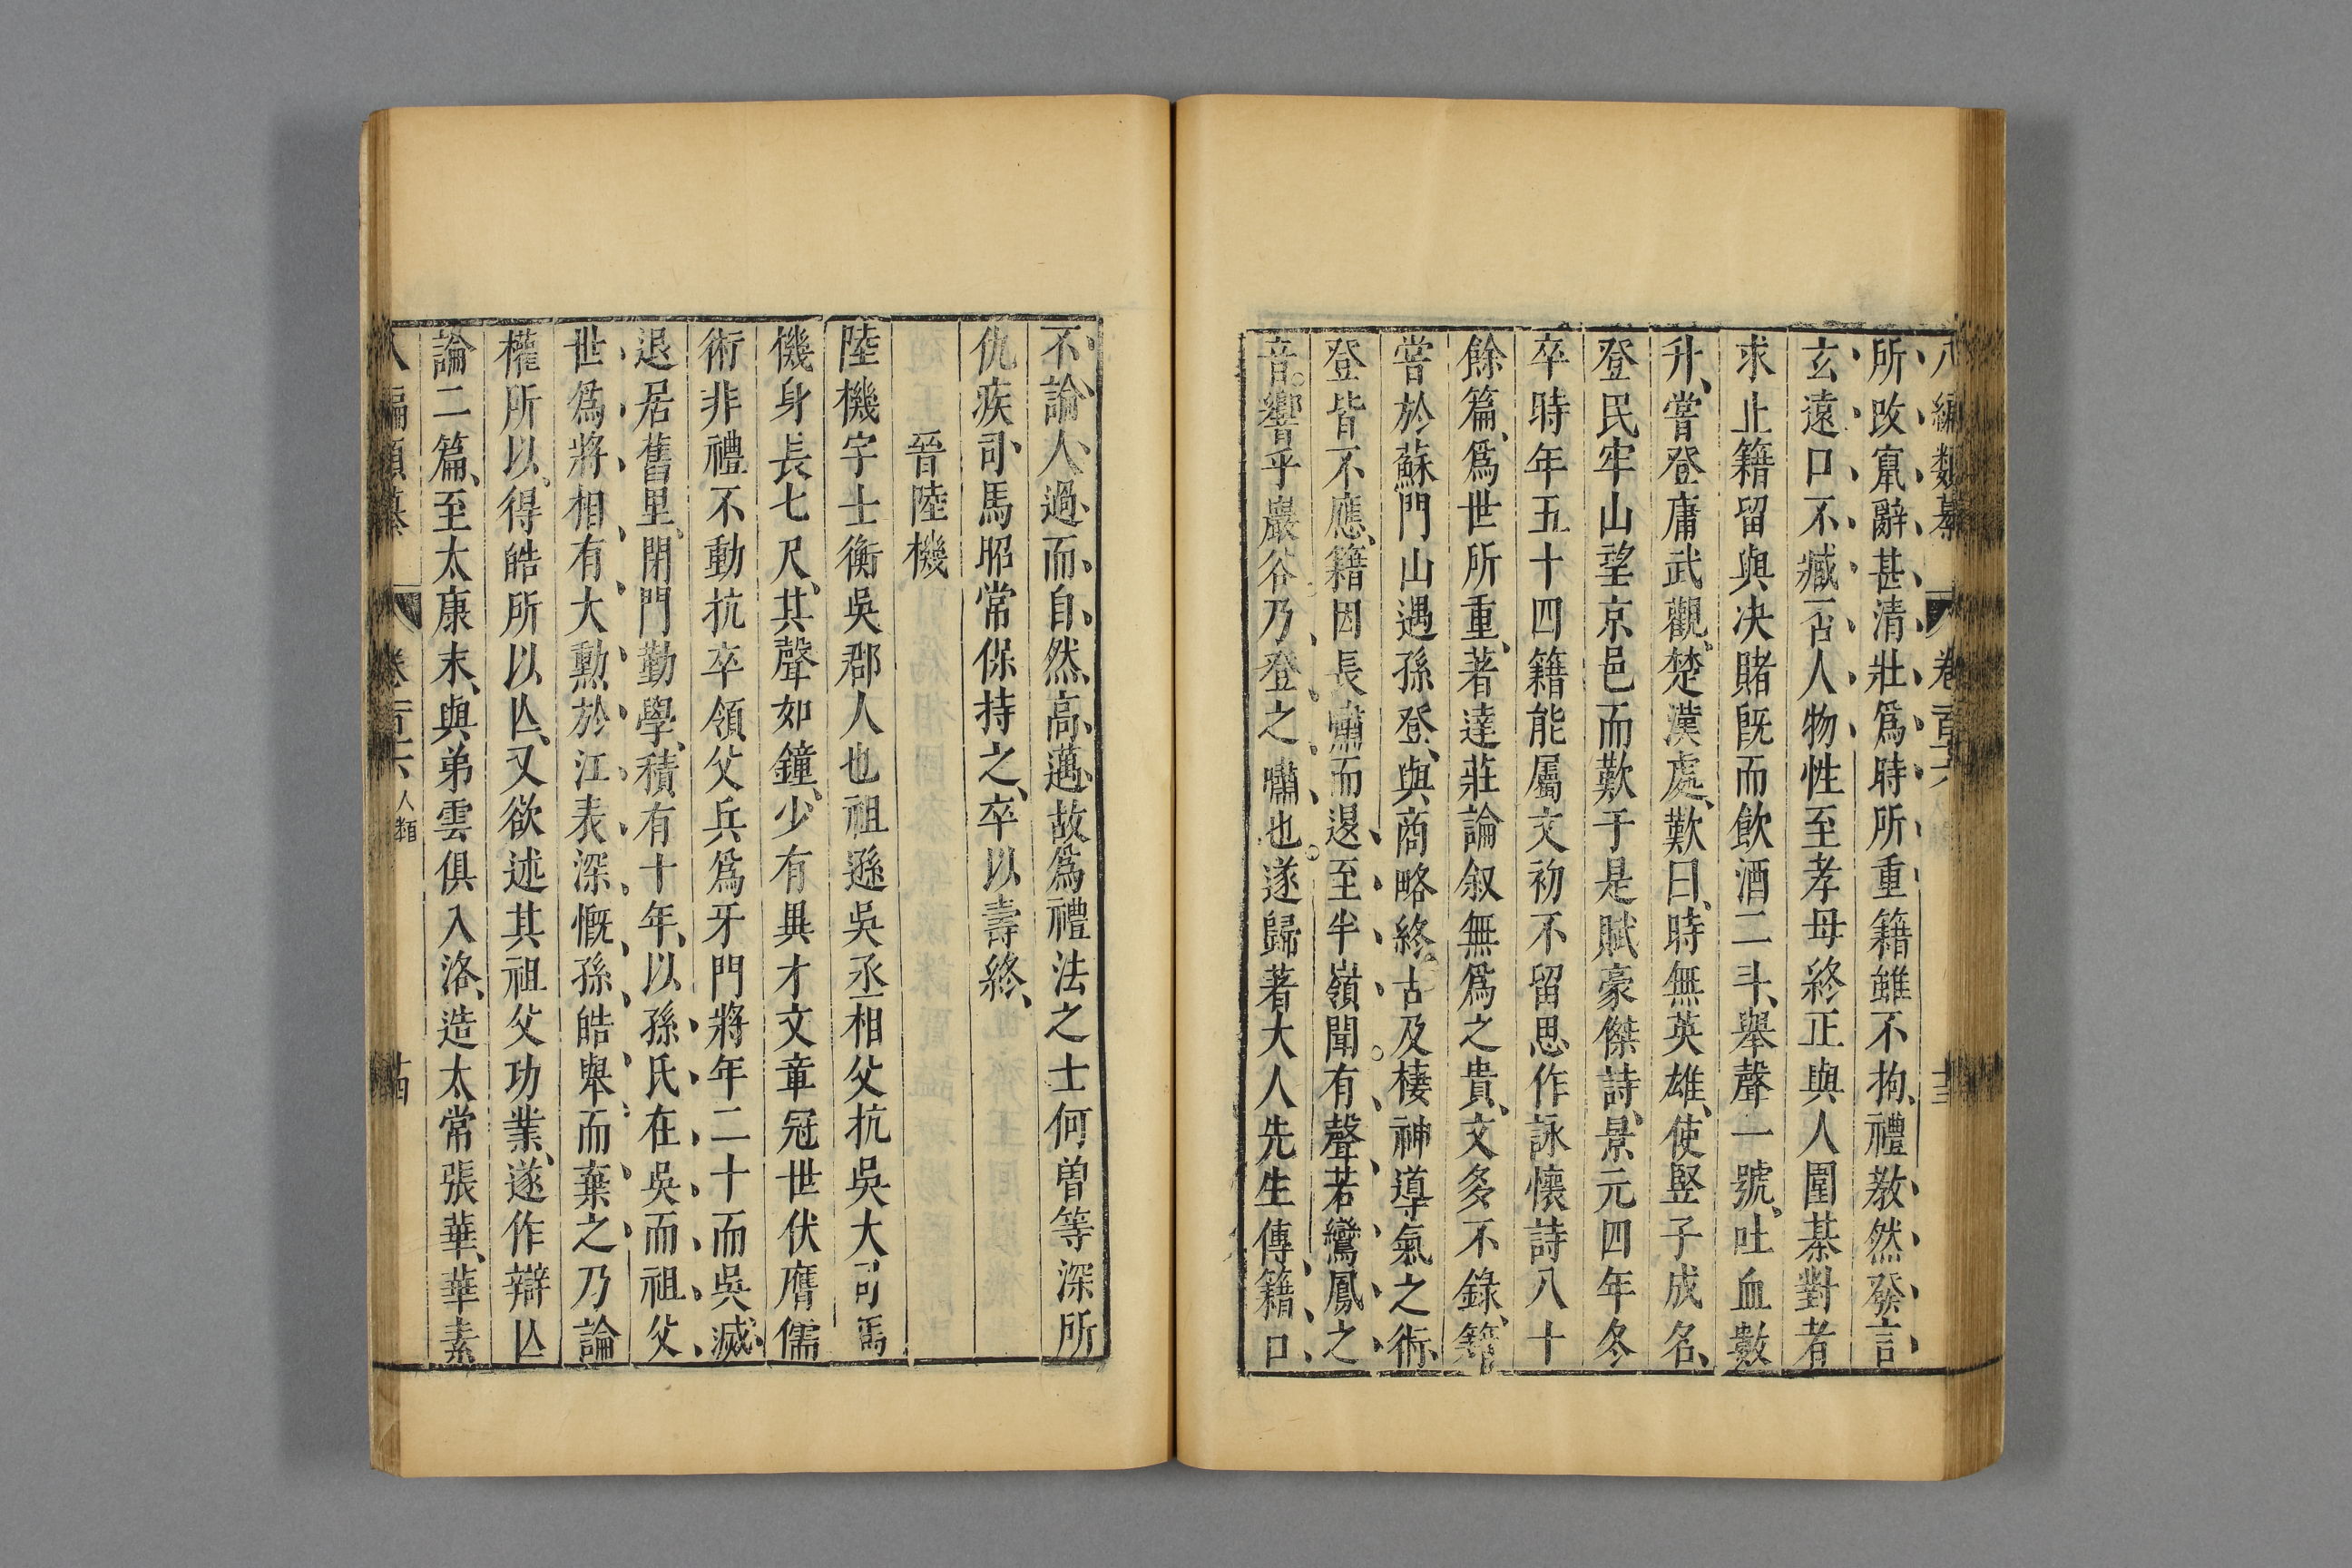 八編類纂 卷百六 十三
所改竄辭甚清壯爲時所重籍雖不拘禮教然發言
玄遠口不臧否人物性至孝母終正與人圍棊對者
求止籍留與决賭旣而飲酒二斗舉聲一號吐血數
升嘗登廣武觀楚漢處歎曰時無英雄使竪子成名
登民牢山望京邑而歎于是賦豪傑詩景元四年冬
卒時年五十四籍能屬文初不留思作詠懷詩八十
餘篇爲世所重著達莊論叙無爲之貴文多不錄籍
甞於蘇門山遇孫登與商略終古及棲神導氣之術
登皆不應籍因長嘯而退至半嶺聞有聲若鸞鳳之
音響乎巖谷乃登之嘯也遂歸著大人先生傳籍口
不論人過而自然高邁故爲禮法之士何曾等深所
仇疾司馬昭常保持之卒以壽終
晉陸機
陸機字士衡吳郡人也祖遜吳丞相父抗吳大司馬
機身長七尺其聲如鐘少有異才文章冠世伏膺儒
術非禮不動抗卒領父兵爲牙門將年二十而吳滅
退居舊里閉門勤學積有十年以孫氏在吳而祖父
世爲將相有大勲於江表深慨孫皓舉而棄之乃論
權所以得皓所以亾又欲述其祖父功業遂作辯亾
論二篇至太康末與弟雲俱入洛造太常張華華素
八編類纂 卷百六 人類 十四